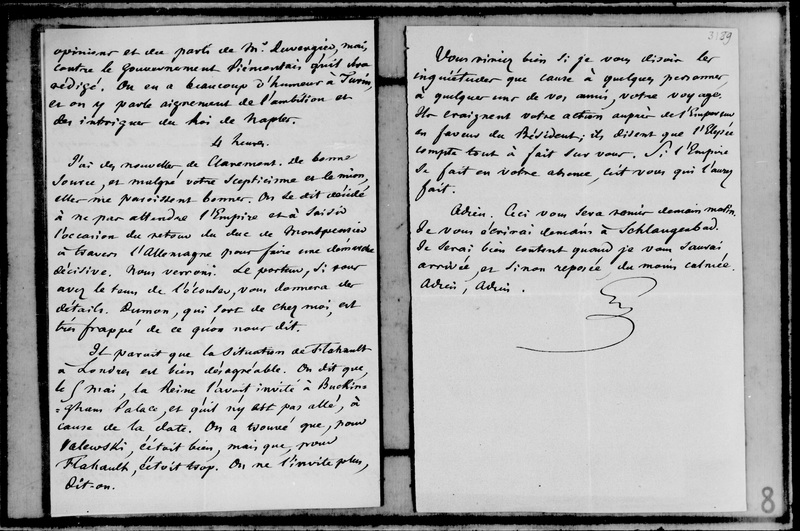 opinions et du parti de Mr. Duvergier, mais
contre le Gouvernement Piémontais qu'il sera
rédigé. On en a beaucoup d'humeur à Turin,
et on y parle aigrement de l'ambition et
des intrigues du Roi de Naples.
4 heures.
J'ai des nouvelles de Claremont. De bonne
source, et malgré votre scepticisme et le mien,
elles me paroissent bonnes. On se dit décidé
à ne pas attendre l'Empire et à saisir
l'occasion du retour du duc de Montpensier
à travers l'Allemagne pour faire une démarche
décisive. Nous verrons. Le porteur, si vous
avez le tems de l'écouter, vous donnera des
détails. Dumon, qui sort de chez moi, est
très frappé de ce qu'on nous dit.
Il paroit que la situation de Flahault
à Londres est bien désagréable. On dit que,
le 5 mai, la Reine l'avoit invité à Buckin=
=gham Palace, et qu'il n'y est pas allé, à
cause de la date. On a trouvé que, pour
Valewski, c'étoit bien, mais que, pour
Flahault, c'étoit trop. On ne l'invite plus,
dit-on.
3189
Vous ririez bien si je vous disois les
inquiétudes que cause à quelques personnes,
à quelques uns de vos amis, votre voyage.
Ils craignent votre action auprès de l'Empereur
en faveur du Président; ils disent que l'Elysée
compte tout à fait sur vous. Si l'Empire
se fait en votre absence, c'est vous qui l'aurez
fait.
Adieu. Ceci vous sera remis demain matin.
Je vous écrirai demain à Schlangenbad.
Je serai bien content quand je vous saurai
arrivée, et sinon reposée, du moins calmée.
Adieu, Adieu.
8